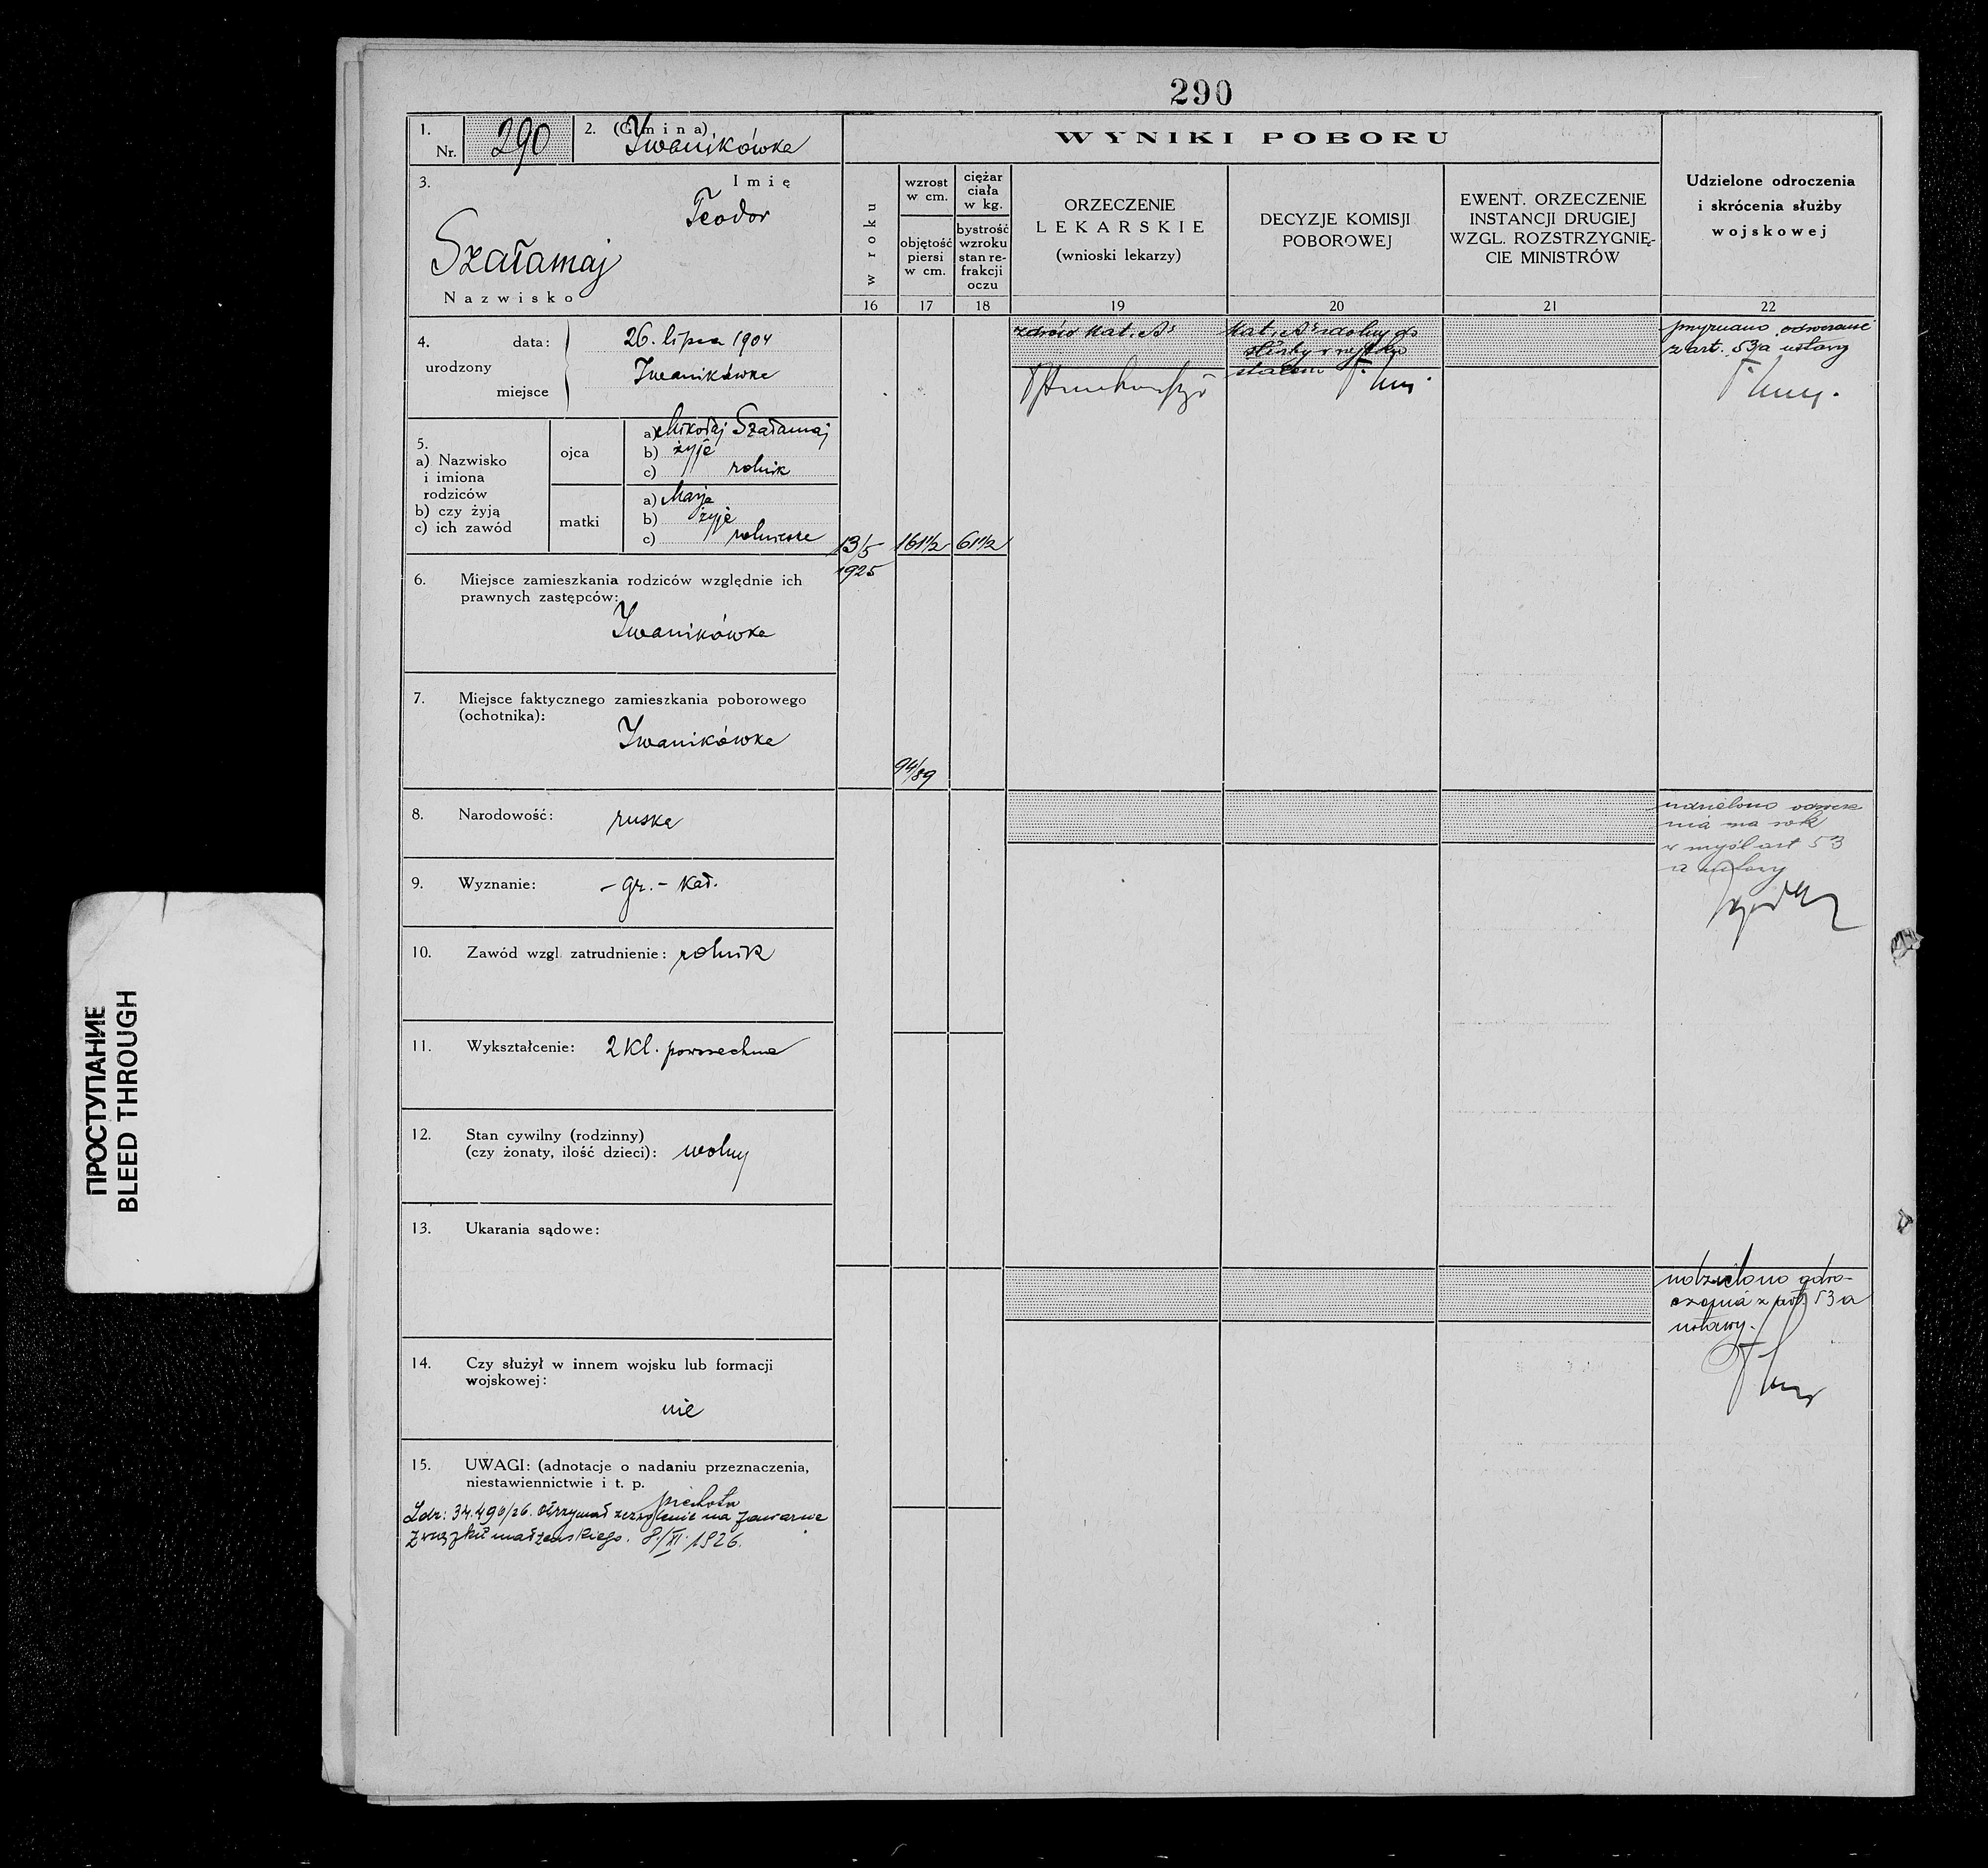 290
1.
Nr. 290
2. (Gmina)
Iwanikówka
3.
Imię
Teodor
Szałamaj
Nazwisko
WYNIKI POBORU
w roku
16
wzrost
w cm.
objętość
piersi
w cm.
17
ciężar
ciała
w kg.
bystrość
wzroku
stan re-
frakcji
oczu
18
ORZECZENIE
LEKARSKIE
(wnioski lekarzy)
19
DECYZJE KOMISJI
POBOROWEJ
20
EWENT. ORZECZENIE
INSTANCJI DRUGIEJ
WZGL. ROZSTRZYGNIĘ-
CIE MINISTRÓW
21
Udzielone odroczenia
i skrócenia służby
wojskowej
22
4.
urodzony
data: 26. lipca 1904
miejsce Iwanikówka
5.
a) Nazwisko
i imiona
rodziców
b) czy żyją
c) ich zawód
ojca
a) Mikołaj Szałamaj
b) żyje
c) rolnik
matki
a) Marja
b) żyje
c)
6. Miejsce zamieszkania rodziców względnie ich
prawnych zastępców:
Iwanikówka
7. Miejsce faktycznego zamieszkania poborowego
(ochotnika):
Iwanikówka
8. Narodowość: ruska
9. Wyznanie: - gr. - kat.
10. Zawód wzgl. zatrudnienie: rolnik
11. Wykształcenie: 2 kl. powszechna
12. Stan cywilny (rodzinny)
(czy żonaty, ilość dzieci): wolny
13. Ukarania sądowe:
14. Czy służył w innem wojsku lub formacji
wojskowej:
nie
15. UWAGI: (adnotacje o nadaniu przeznaczenia,
niestawiennictwie i t. p.
piechota
Ldz: 34.490/26. otrzymał zezwolenie na zawarcie
związku małżeńskiego. 8/XI 1926.
13/5
1925
161 1/2
61 1/2
94/89
zdrów kat. A
kat. A zdolny do
służby w wojsku
stałem
przyznano odroczenie
z art. 53a ustawy
udzielono odrocze
nia na rok
w myśl art 53
a ustawy
udzielono odro-
czenia z art. 53 a
ustawy.
ПРОСТУПАНИЕ
BLEED THROUGH